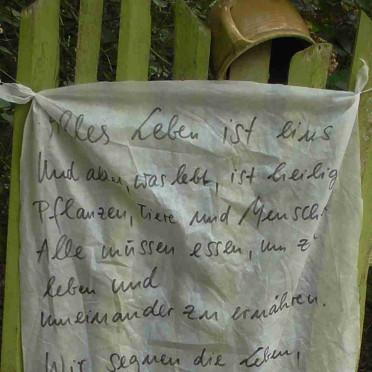 Alles Leben ist eins
Und alles, was lebt, ist heilig
Pflanzen, Tiere und Mensch
Alle müssen essen, um z
leben und
uneinander zu ernähren.
Wir segnen die Leben,